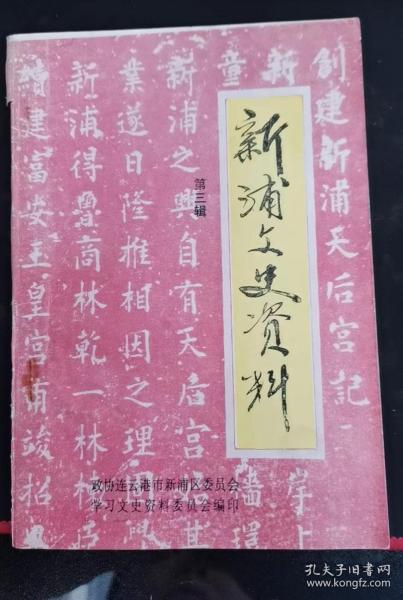 新浦文史资料
第三辑
創建新浦天后宮記
新浦之興自有天后宮
業遂日隆推相因之理
新浦得豐商林乾一林
續建富安玉皇宮甫竣招
政协连云港市新浦区委员会
学习文史资料委员会编印
孔夫子旧书网
www.kongfz.com